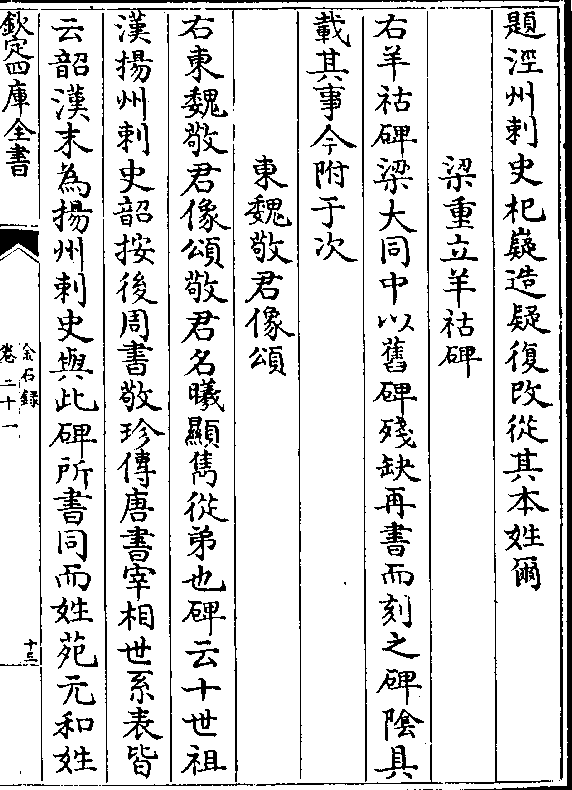 題涇州刺史杞嶷造疑復改從其本姓爾
梁重立羊祜碑
右羊祜碑梁大同中以舊碑殘缺再書而刻之碑隂具
載其事今附于次
東魏敬君像頌
右東魏敬君像頌敬君名曦顯雋從弟也碑云十世祖
漢揚州刺史韶按後周書敬珍傳唐書宰相世系表皆
云韶漢末為揚州刺史與此碑所書同而姓苑元和姓
欽定四庫全書
金石録
卷二十一
十三